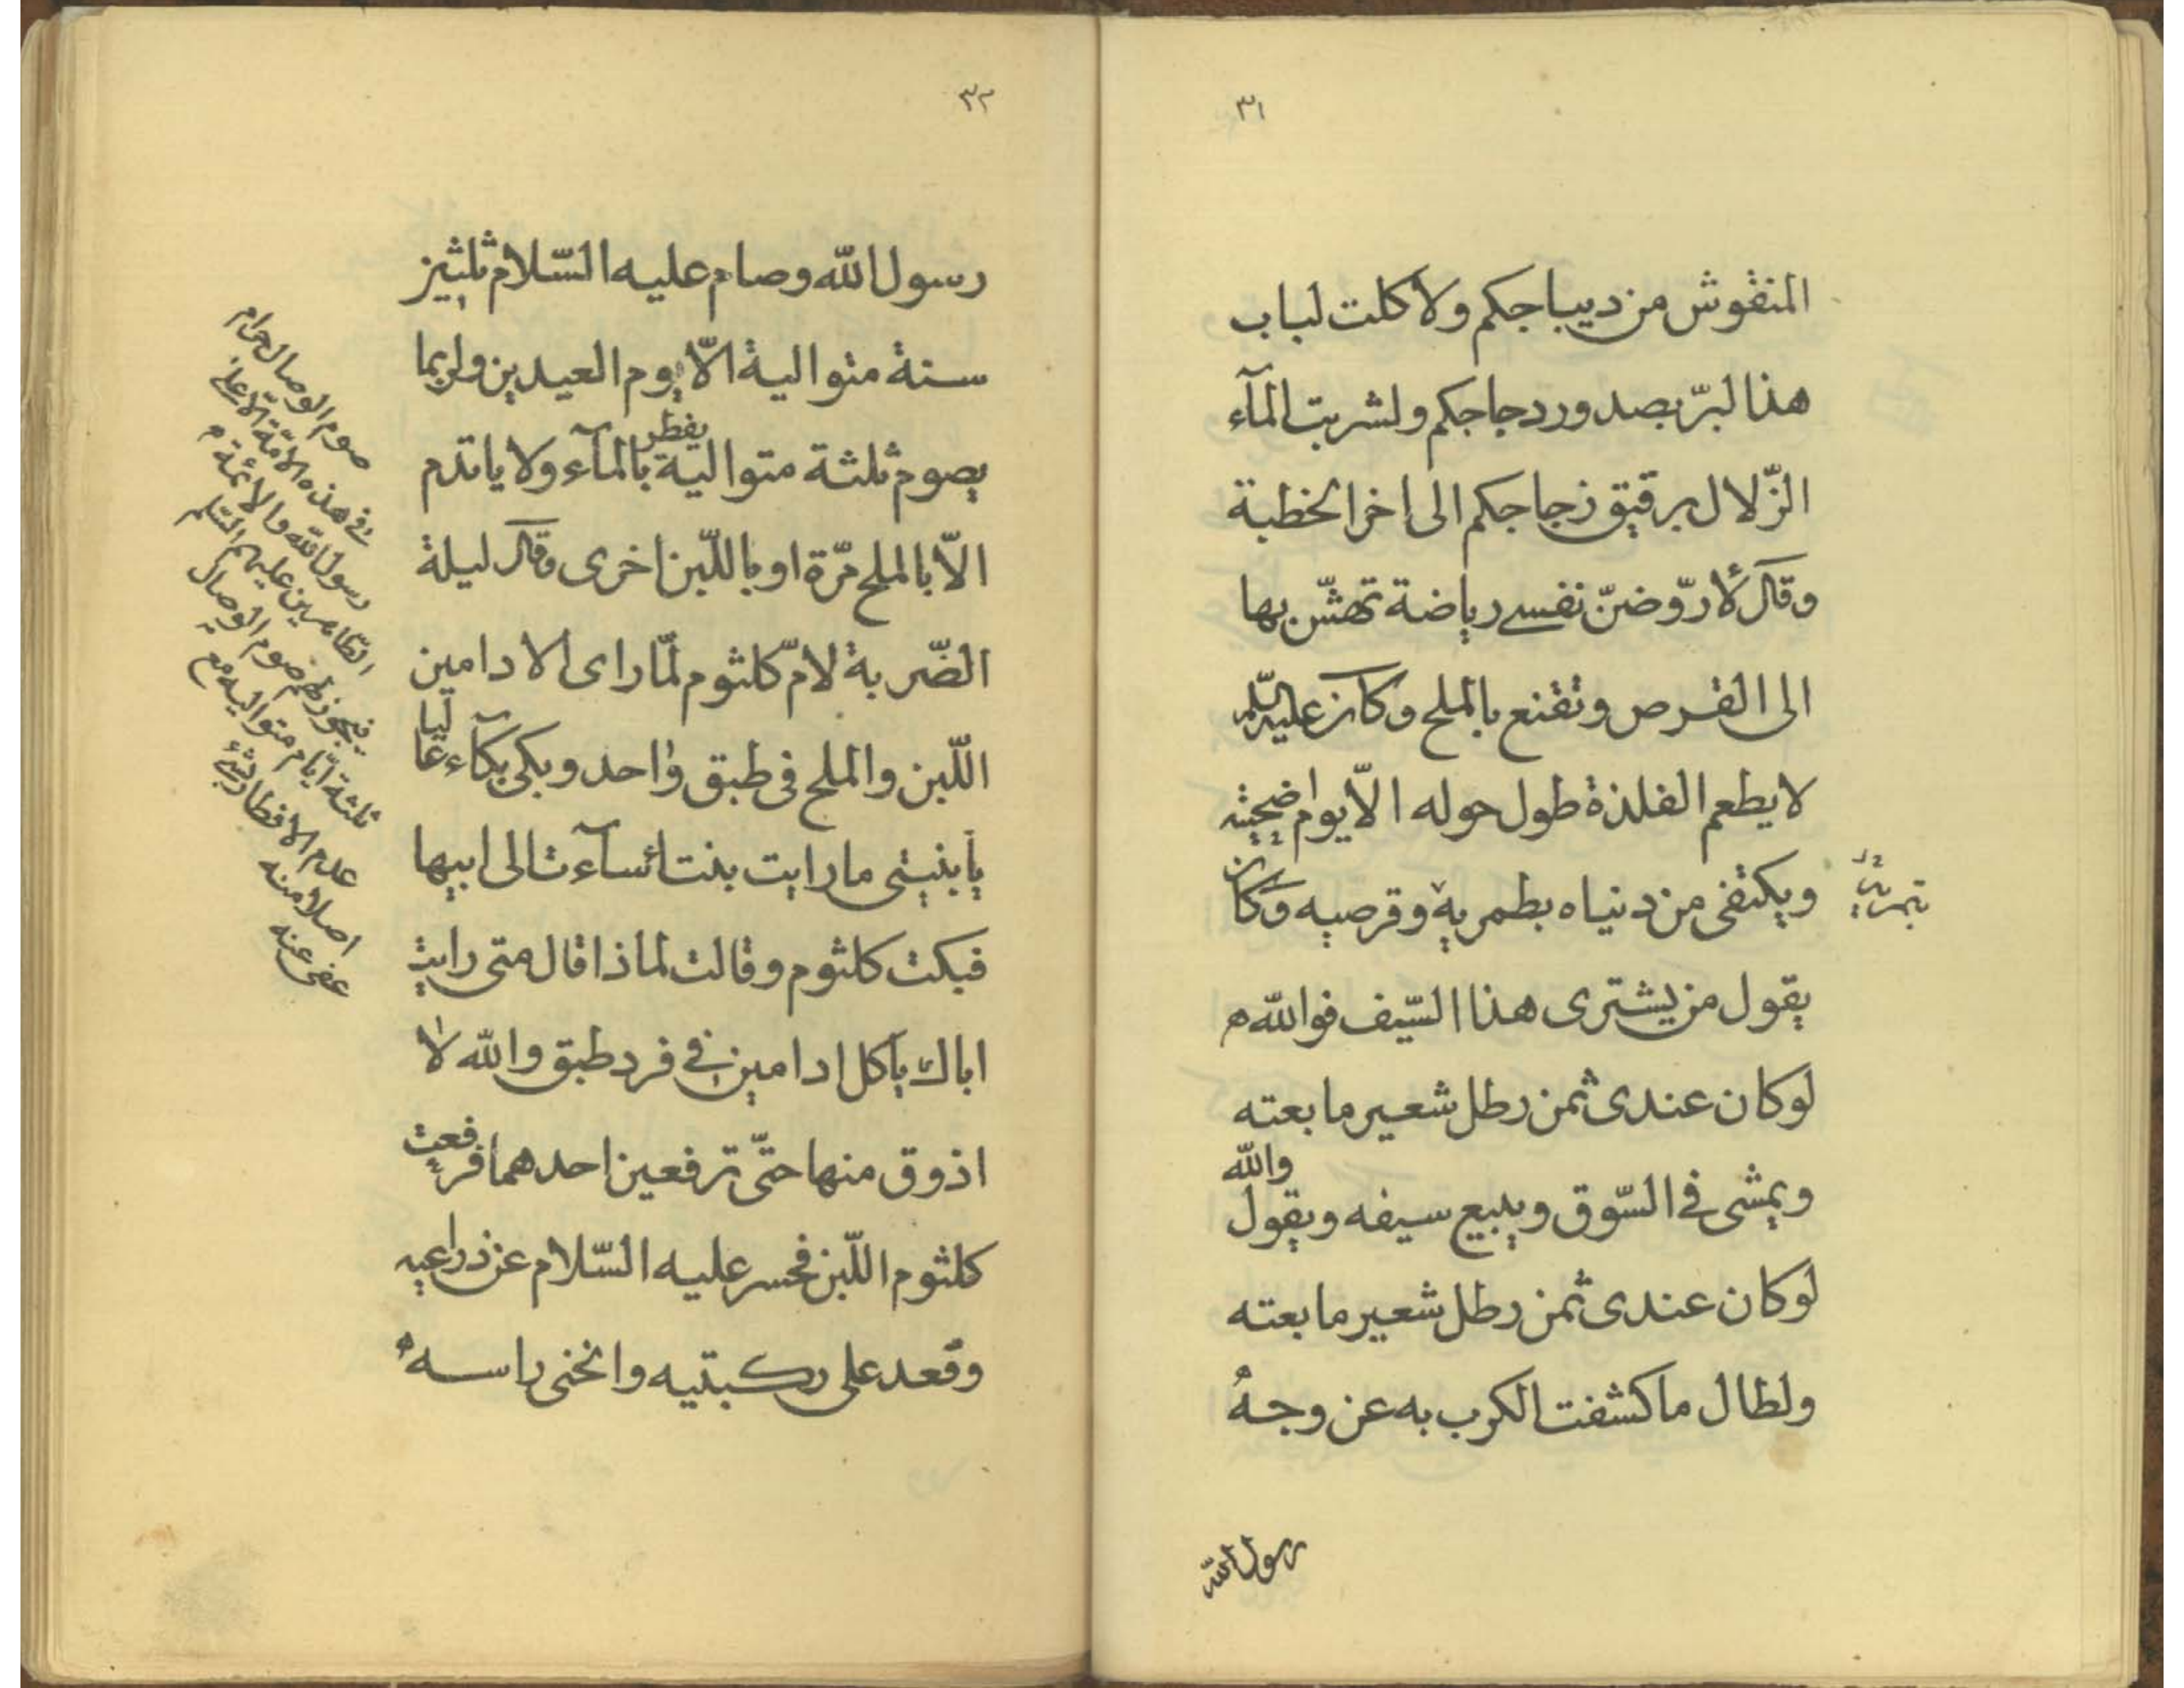 ٣١
المنقوش من ديباجكم ولاكلت لباب
هذا لبرّ بصدور دجاجكم ولشربت المآء
الزّلال برقيق زجاجكم الى اخر الخطبة
وقال لأروّضنّ نفسى رياضة تهشّ بها
الى القرص وتقنع بالملح وكان عليه السّلم
لا يطعم الفلذة طول حوله الاّ يوم اضحيته
ويكتفى من دنياه بطمريه وقرصيه وكان
يقول من يشترى هذا السّيف فوالله
لو كان عندى ثمن رطل شعير ما بعته
ويمشى فى السّوق ويبيع سيفه ويقول والله
لو كان عندى ثمن رطل شعير ما بعته
ولطال ما كشفت الكرب به عن وجه
رسول الله
٣٢
رسول الله وصام عليه السّلام ثلثين
سنة متوالية الاّ يوم العيدين ولربما
يصوم ثلثة متوالية يفطر بالمآء ولا ياتدم
الاّ بالملح مرّة او باللّبن اخرى وقال ليلة
الضّربة لامّ كلثوم لمّا راى الادامين
اللّبن والملح فى طبق واحد وبكى بكآء عاليا
يا بنيتى ما رايت بنتا اسآءت الى ابيها
فبكت كلثوم وقالت لماذا قال متى رايت
اباك يآكل ادامين فى فرد طبق والله لا
اذوق منها حتّى ترفعين احدهما فرفعت
كلثوم اللّبن فحسر عليه السّلام عن ذراعيه
وقعد على ركبتيه وانحنى راسه
صوم الوصال حرام
فى هذه الامّة الاّ على
رسول الله والائمّة
الطّاهرين عليهم السّلم
فيجوز لهم صوم الوصال
ثلثة ايّام متواليه مع
عدم الافطار بشئ
اصلا منه
عفى عنه